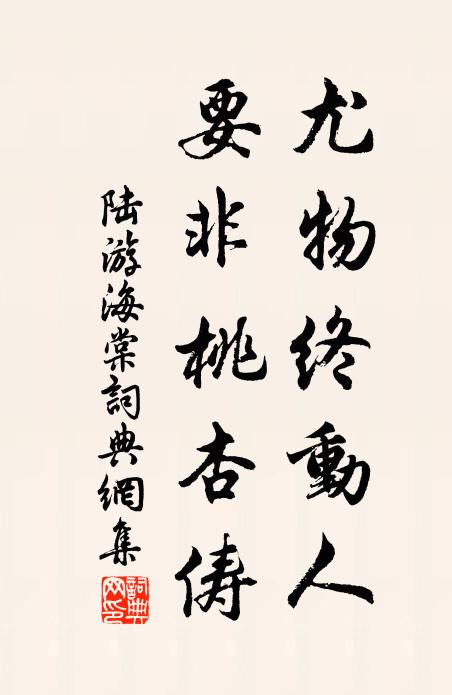 尤物終動人
要非桃杏儔
陆游海棠詞典網集
詞典网印